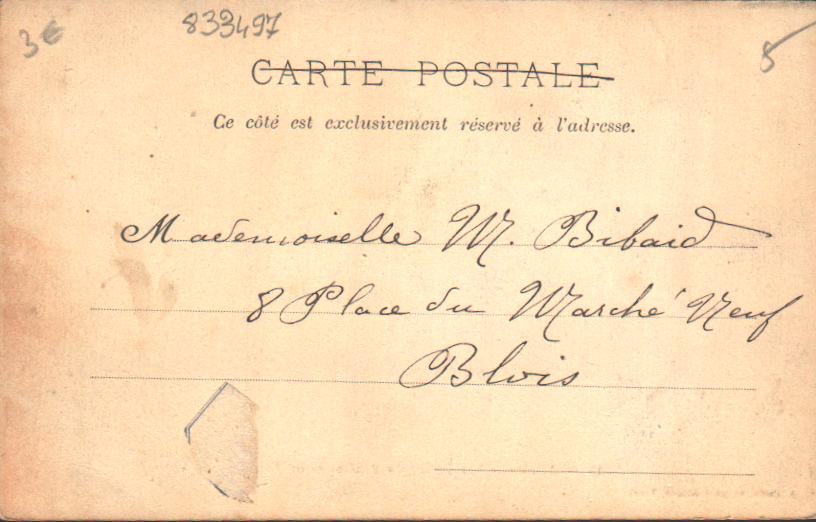 3€
833497
5
CARTE POSTALE
Ce côté est exclusivement réservé à l'adresse.
Mademoiselle M. Bibaid
8 Place du Marché Neuf
Blois